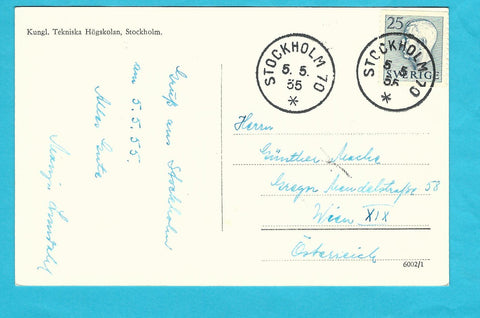 Kungl. Tekniska Högskolan, Stockholm.
Gruß aus Stockholm
am 5.5.55.
Alles Gute
25
SVERIGE
STOCKHOLM 70
5. 5.
55
STOCKHOLM 70
5. 5.
55
Herrn
Günther
Gregor Mendelstraße 58
Wien XIX
Österreich
6002/1